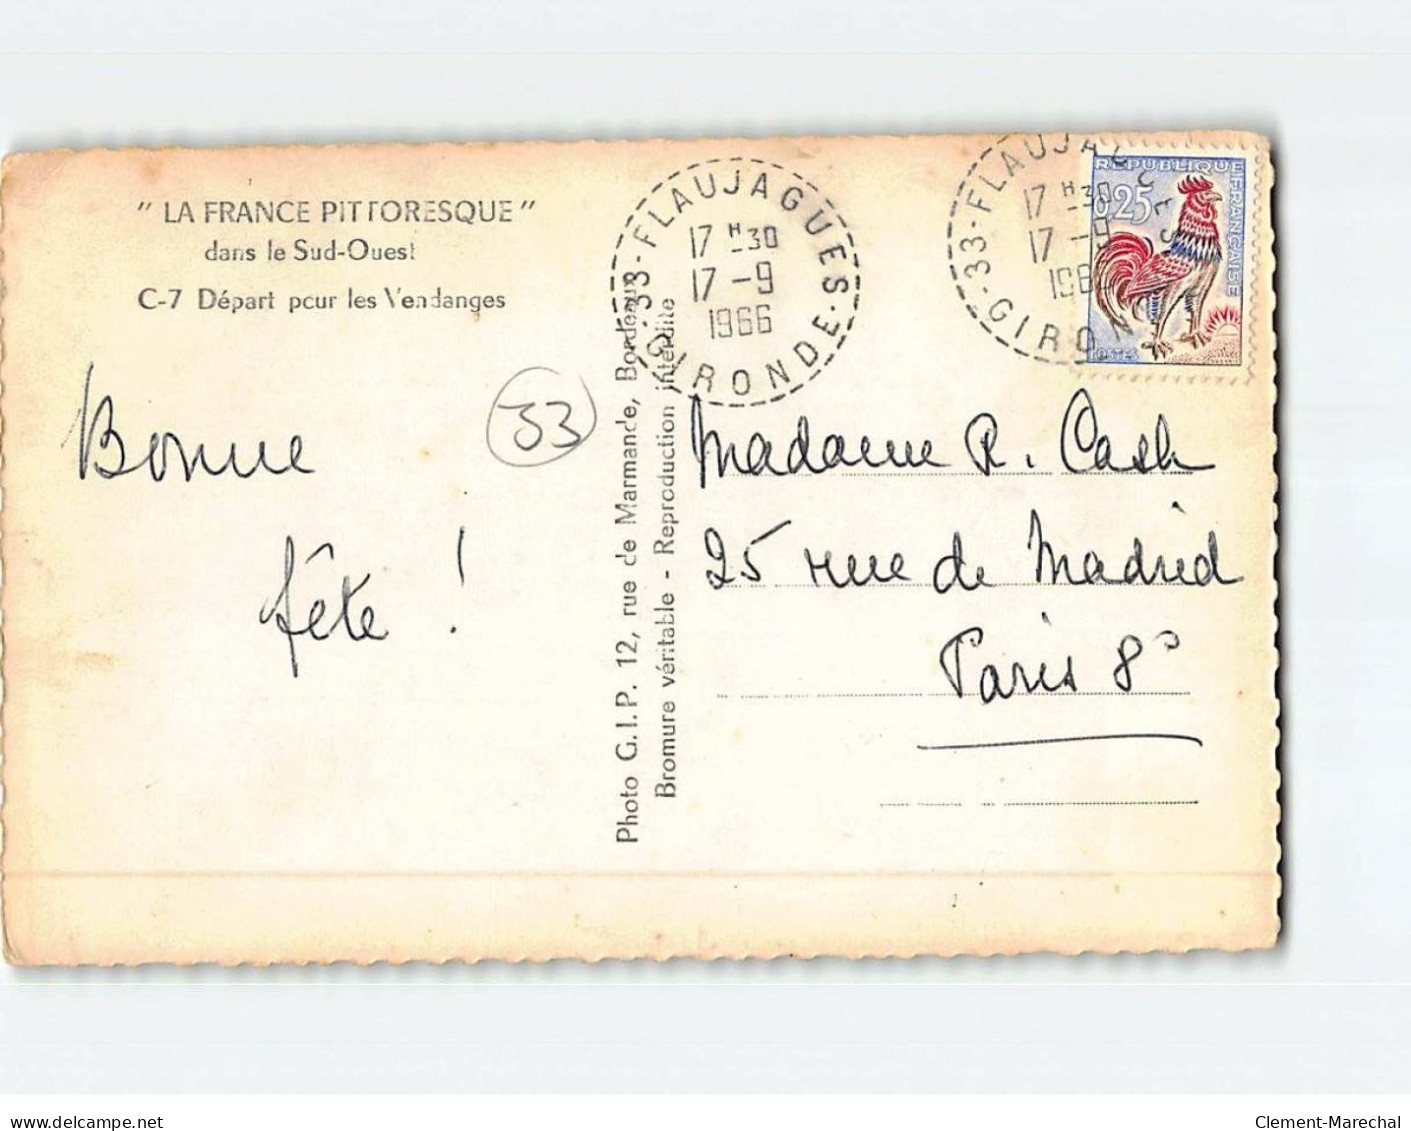 " LA FRANCE PITTORESQUE "
dans le Sud-Ouest
C-7 Départ pour les Vendanges
Bonne
fête !
33
Photo G.I.P. 12, rue de Marmande, Bordeaux
Bromure véritable - Reproduction interdite
33-FLAUJAGUES
17 H 30
17 -9
1966
GIRONDE
33-FLAUJAGUES
17 H 30
17 -9
196
GIRON
REPUBLIQUE FRANÇAISE
0,25
POSTES
Madame R. Cash
25 rue de Madrid
Paris 8°
www.delcampe.net
Clement-Marechal